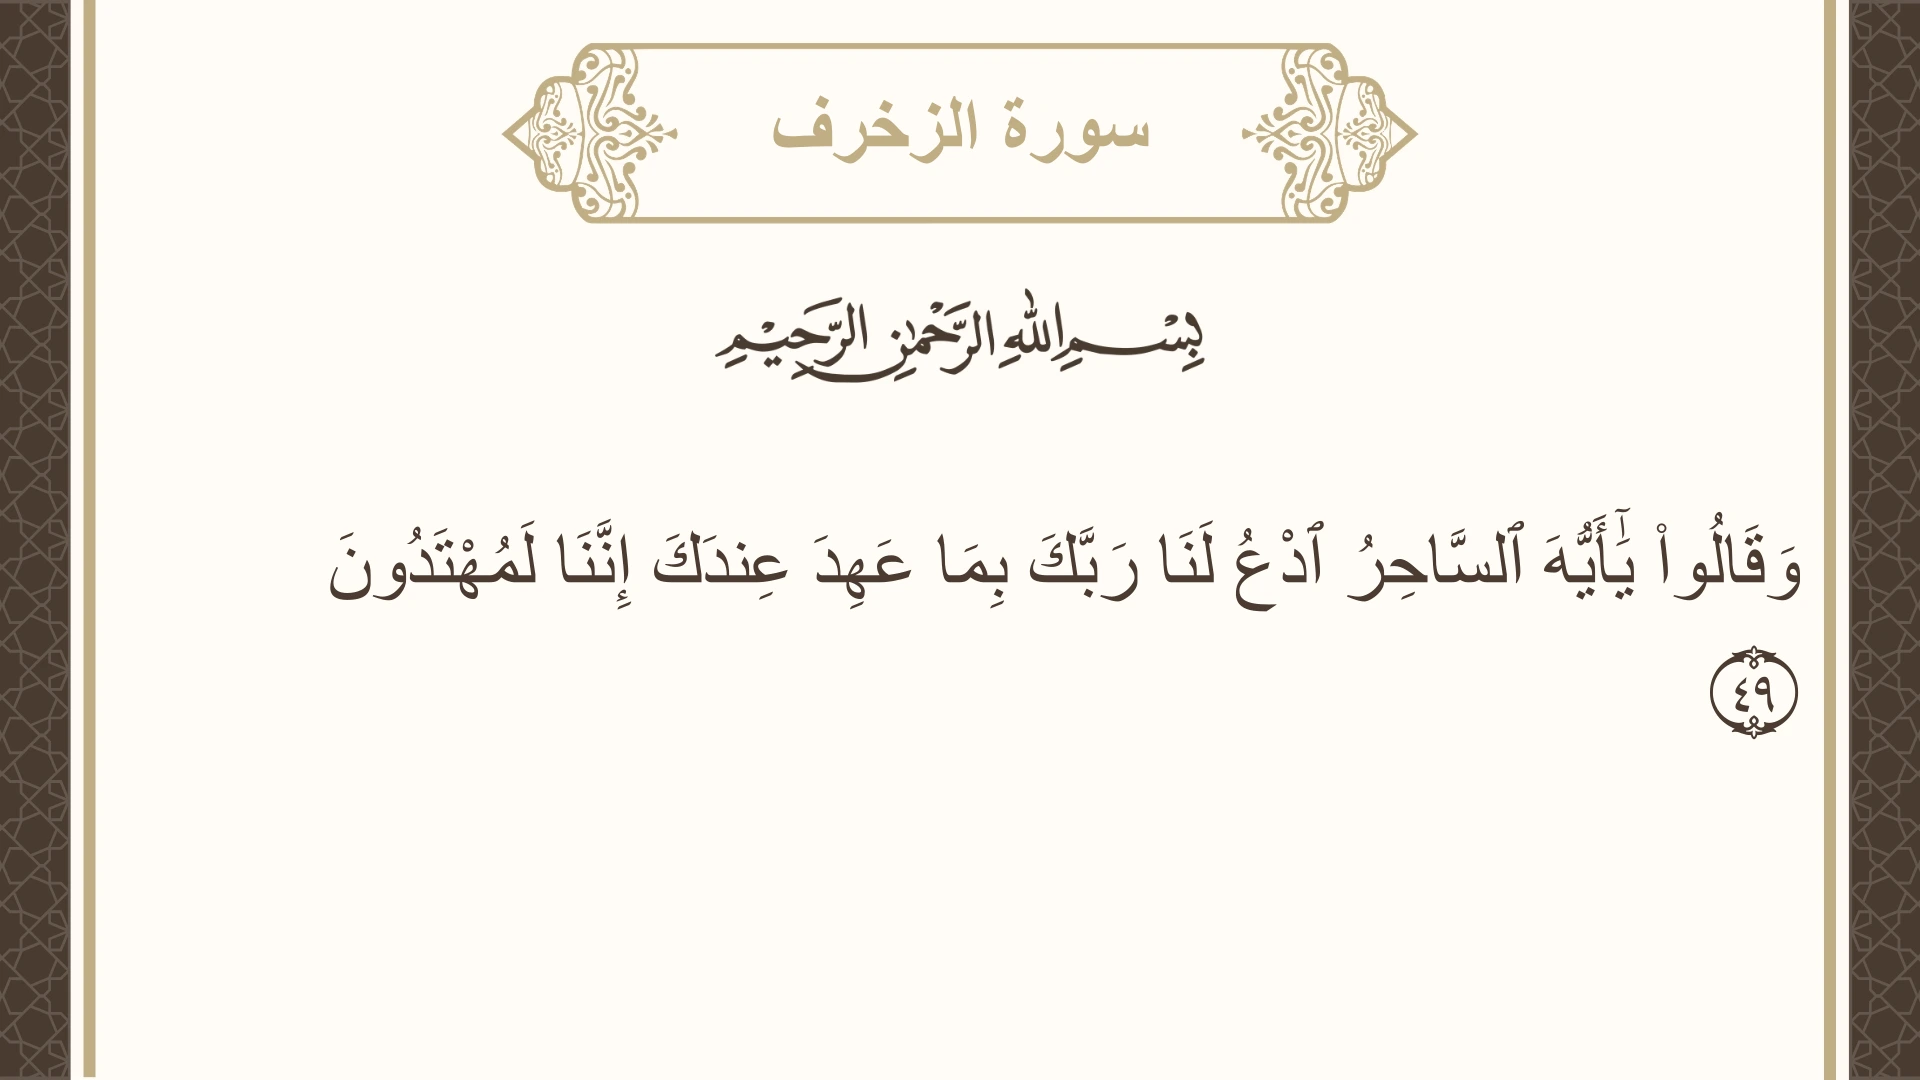 سورة الزخرف
بِسْمِ اللهِ الرَّحْمٰنِ الرَّحِيْمِ
وَقَالُوا۟ يَٰٓأَيُّهَ ٱلسَّاحِرُ ٱدْعُ لَنَا رَبَّكَ بِمَا عَهِدَ عِندَكَ إِنَّنَا لَمُهْتَدُونَ
٤٩